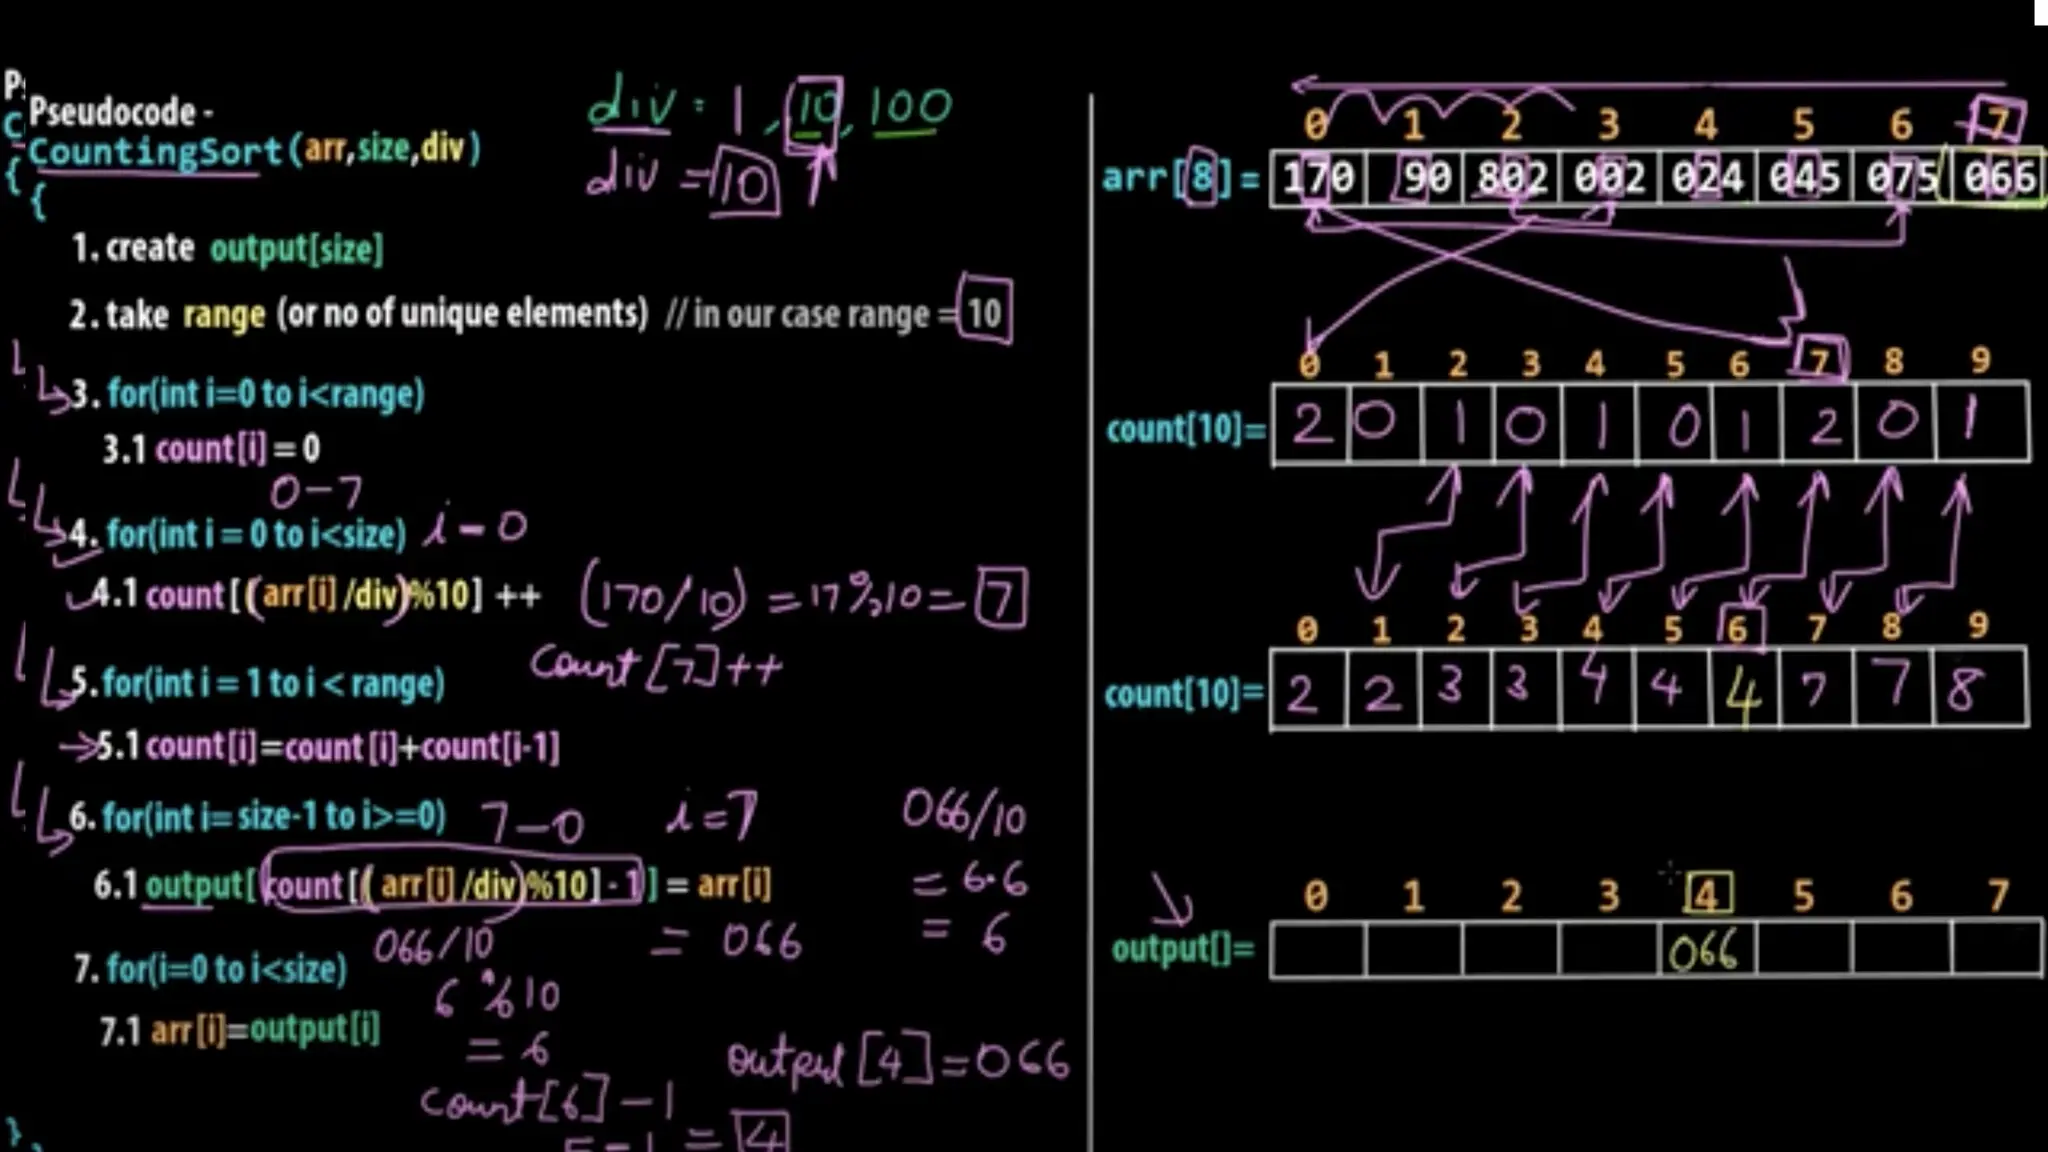 Pseudocode -
CountingSort(arr,size,div)
{
{
1. create output[size]
2. take range (or no of unique elements) // in our case range = 10
3. for(int i=0 to i<range)
3.1 count[i] = 0
0-7
4. for(int i = 0 to i<size) i - 0
4.1 count[(arr[i]/div)%10] ++ (170/10) = 17%10 = 7
count[7]++
5. for(int i = 1 to i < range)
5.1 count[i]=count[i]+count[i-1]
6. for(int i= size-1 to i>=0) 7-0 i=7
6.1 output[count[(arr[i]/div)%10]-1] = arr[i]
066/10 = 066
6 %10
= 6
7. for(i=0 to i<size)
7.1 arr[i]=output[i]
count[6]-1
5-1 = 4
output[4]=066
}
div = 1, 10, 100
div = 10
066/10
= 6.6
= 6
0 1 2 3 4 5 6 7
arr[8] = 170 90 802 002 024 045 075 066
0 1 2 3 4 5 6 7 8 9
count[10]= 2 0 1 0 1 0 1 2 0 1
0 1 2 3 4 5 6 7 8 9
count[10]= 2 2 3 3 4 4 4 7 7 8
0 1 2 3 4 5 6 7
output[]= 066